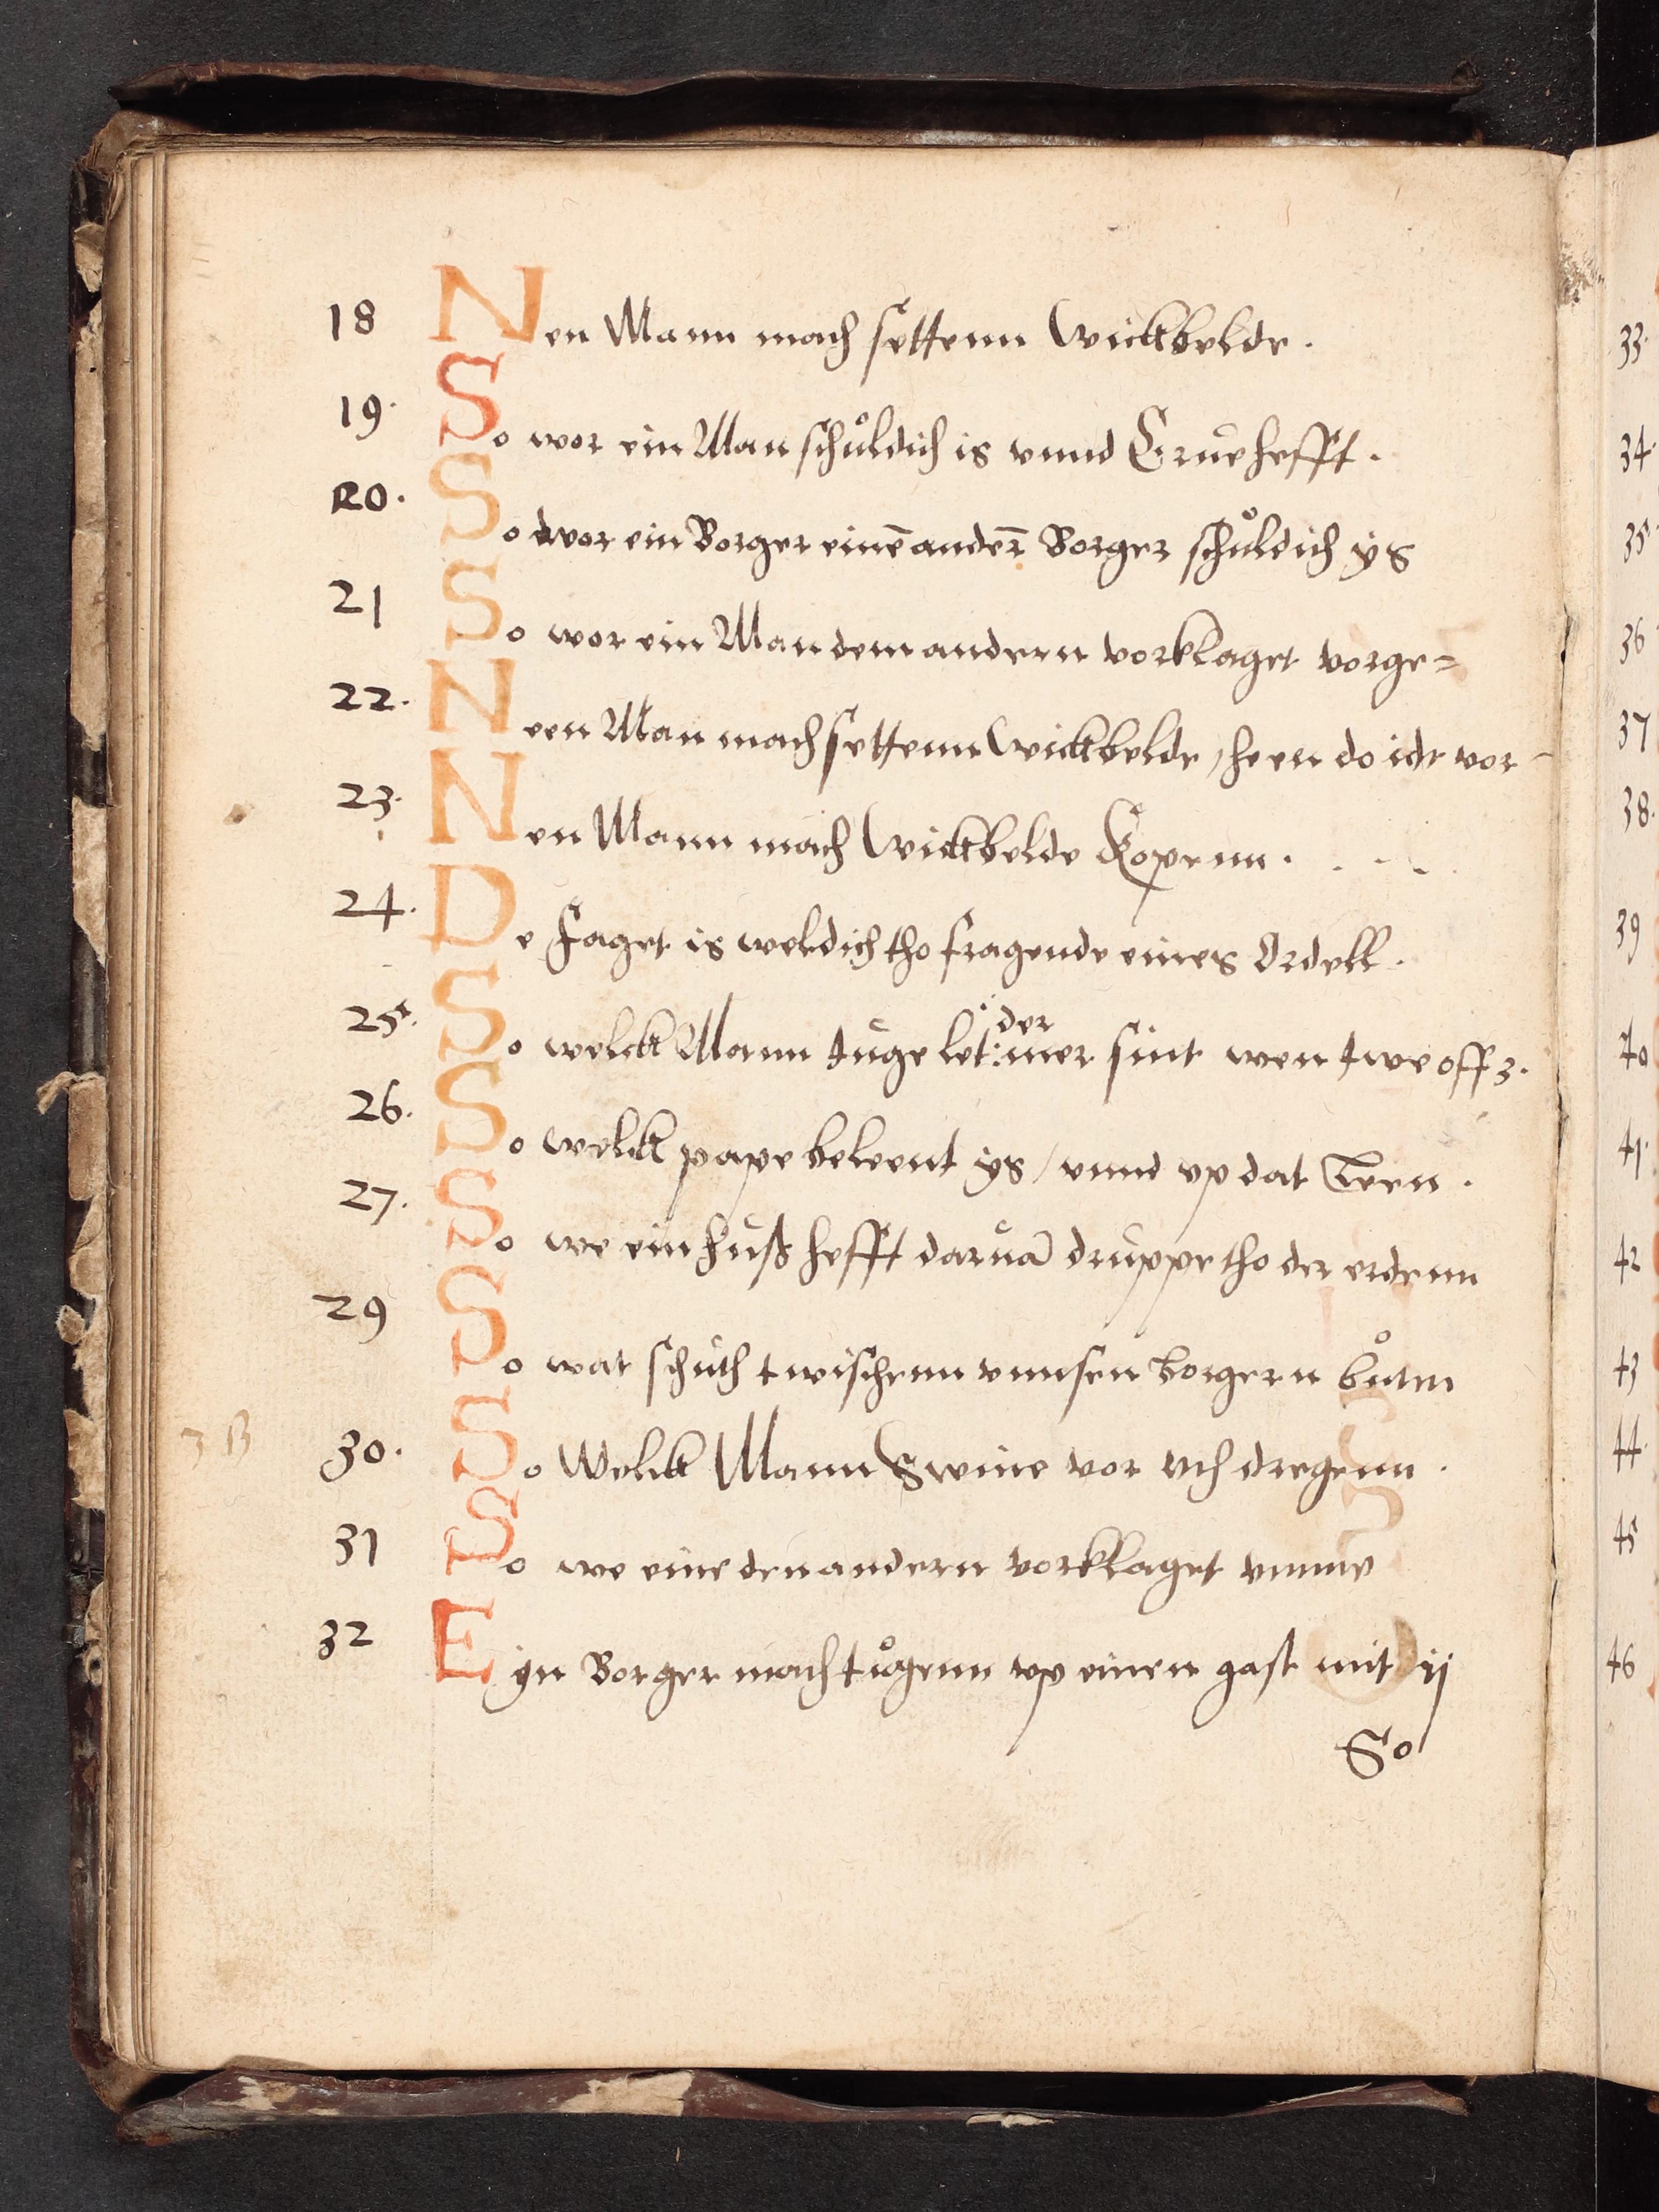 18 Nen Mann mach settenn Wicktbelde.
19. So wor ein Man schůldich is vnnd Erue hefft.
20. So wor ein Borger einē anderē Borger schůldich ys
21 So wor ein Man dem andern vorklaget vorge=
22. Neen Man mach settenn Wicktbelde / he en do idt vor-
23. Nen Mann mach Wicktbelde Kopenn.
24. De Faget is weldich tho fragende eines Ordell.
der
25. So welck Mann tuge let: mer sint wen twe off 3.
26. So welck pape beleent ys / vnnd vp dat Leen.
27. So we ein huß hefft daruā druppe tho der erdenn
29 So wat schuth twischenn vnnsen borgern bůten
30. So Welck Mann Swine vor sich dregenn.
31 So we eine den andern vorklaget vmme
32 Eyn Borger mach tůgenn vp einen gast mit ij
So
33.
34.
35.
36
37
38.
39
40
41.
42
43
44.
45
46